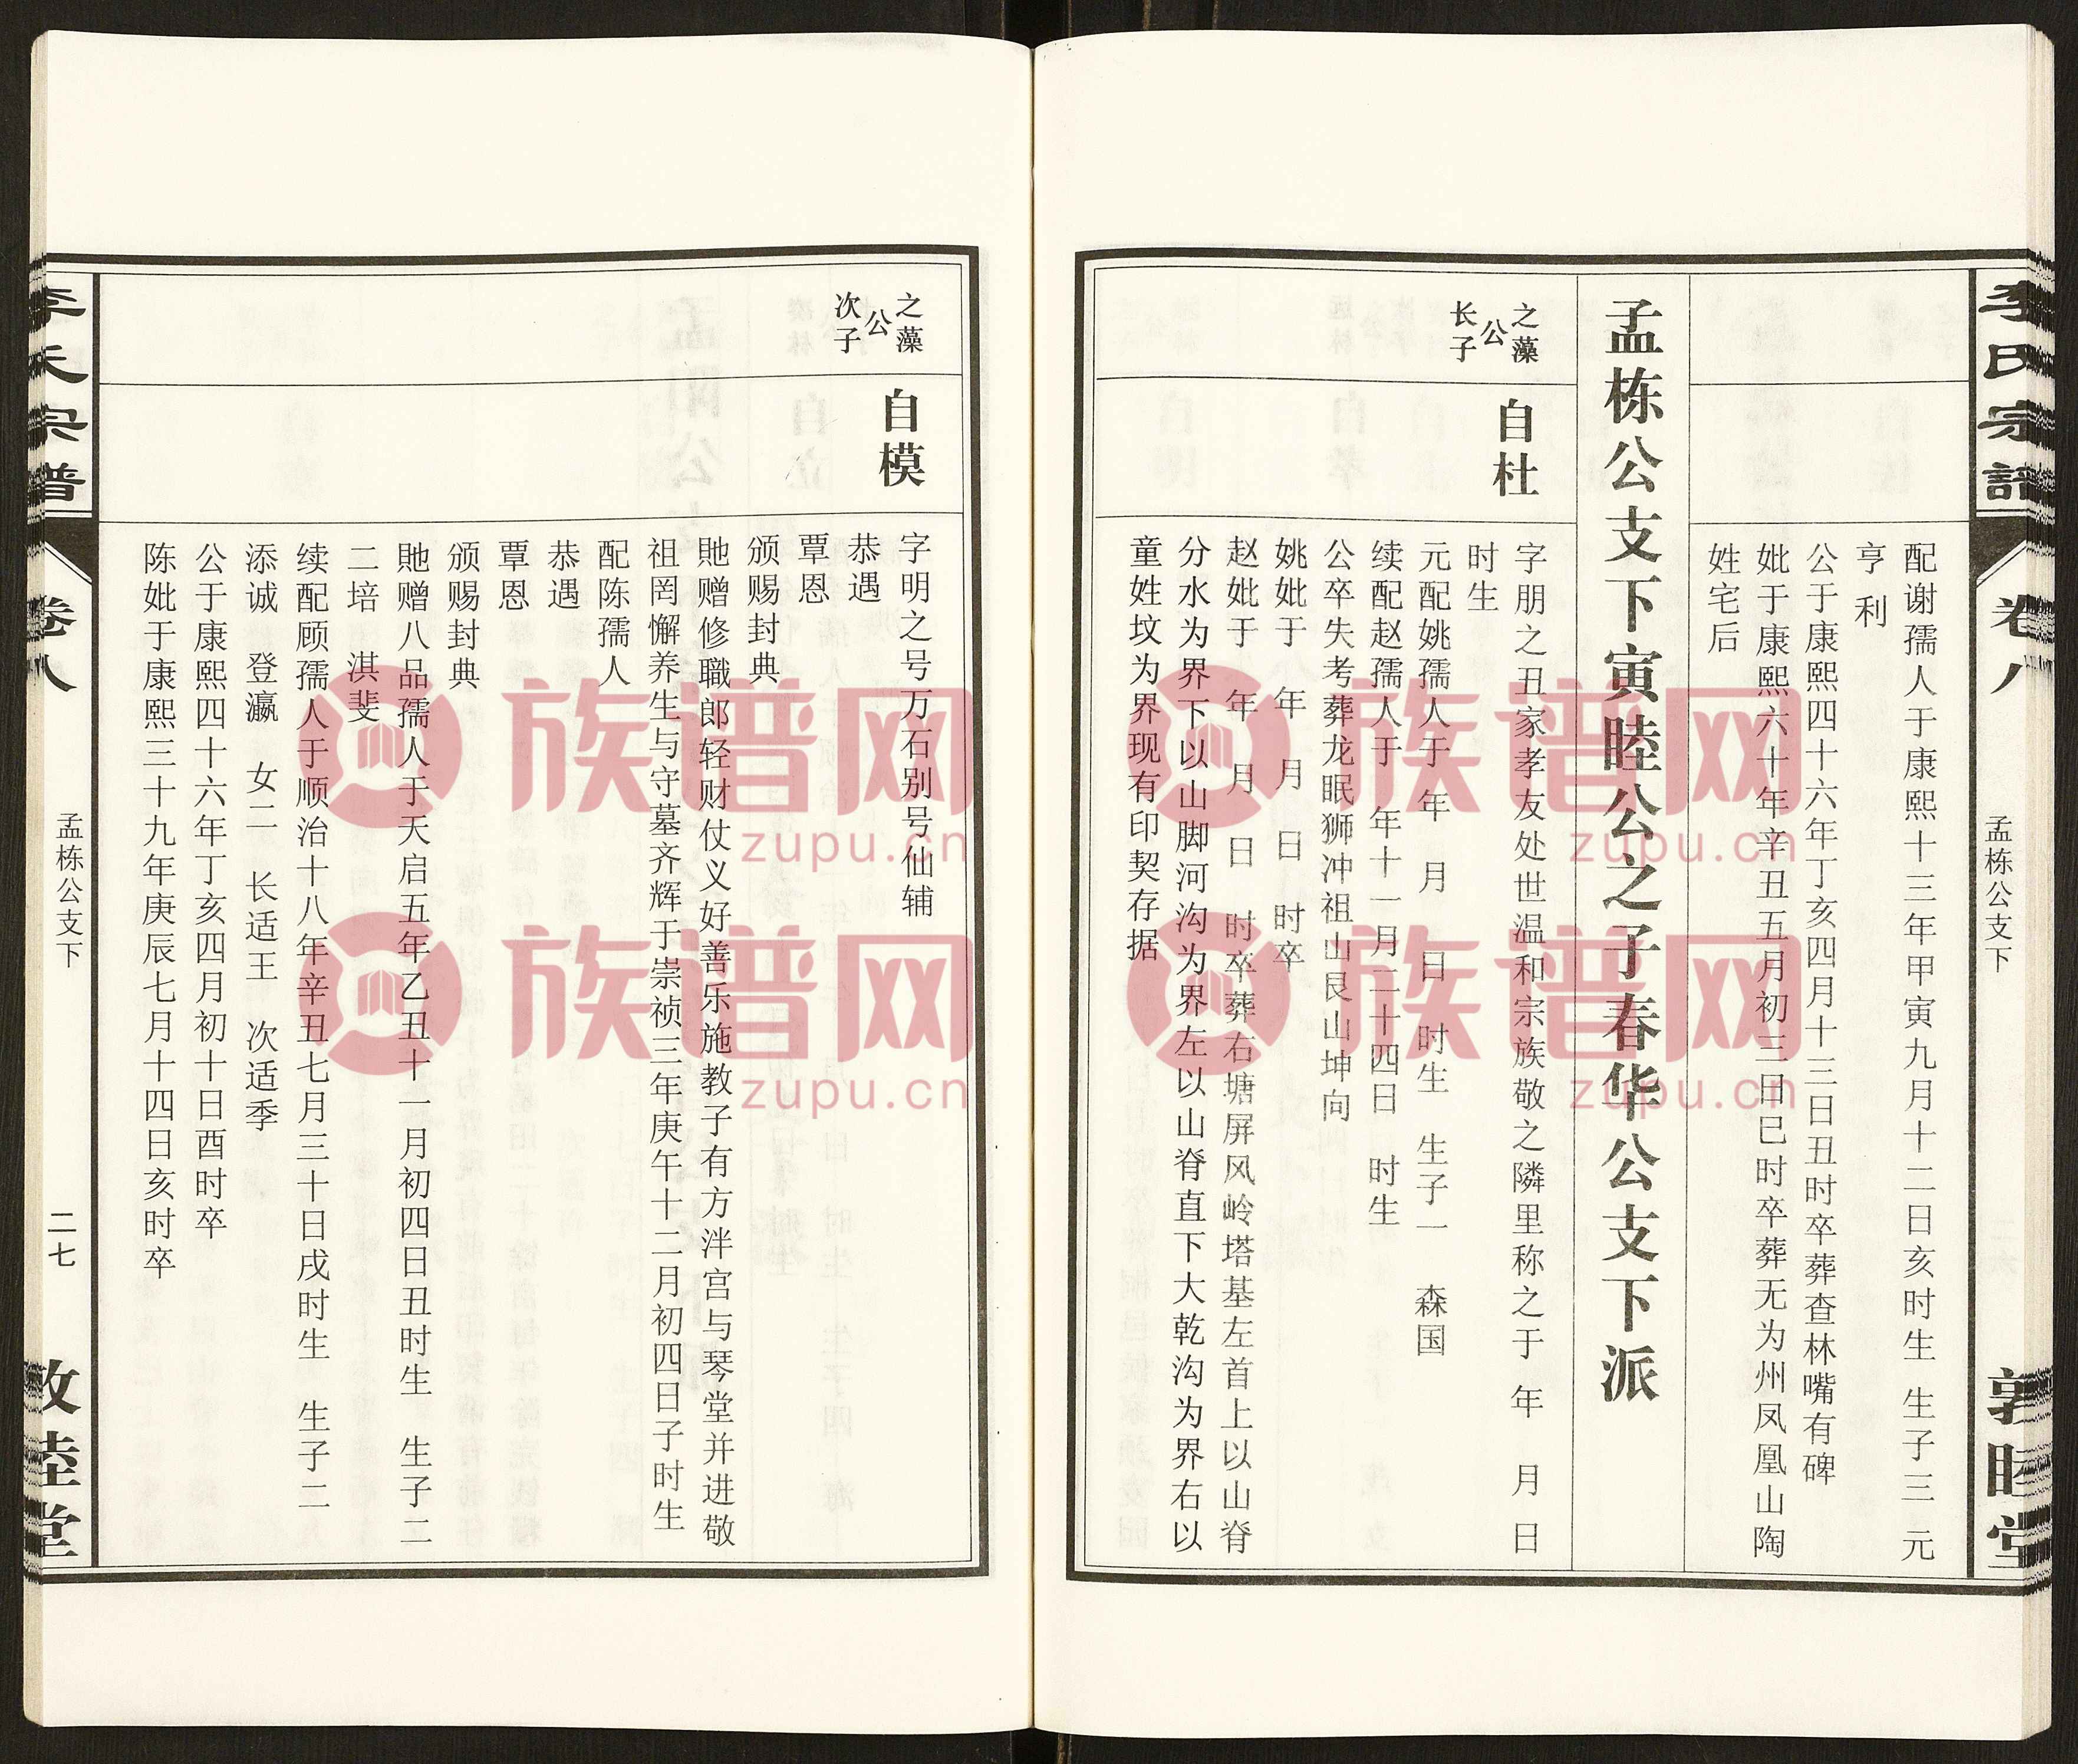 李氏宗譜
卷八
孟栋公支下
敦睦堂
配谢孺人于康熙十三年甲寅九月十二日亥时生 生子三 元
亨 利
公于康熙四十六年丁亥四月十三日丑时卒葬查林嘴有碑
妣于康熙六十年辛丑五月初三日巳时卒葬无为州凤凰山陶
姓宅后
孟栋公支下寅睦公之子春华公支下派
之藻
公
长子
自杜
字朋之丑家孝友处世温和宗族敬之隣里称之于 年 月 日
时生
元配姚孺人于 年 月 日 时生 生子一 森国
续配赵孺人于 年十一月二十四日 时生
公卒失考葬龙眠狮冲祖山艮山坤向
姚妣于 年 月 日 时卒
赵妣于 年 月 日 时卒葬右塘屏风岭塔基左首上以山脊
分水为界下以山脚河沟为界左以山脊直下大乾沟为界右以
童姓坟为界现有印契存据
之藻
公
次子
自模
字明之号万石别号仙辅
恭遇
覃恩
颁赐封典
貤赠修職郎轻财仗义好善乐施教子有方泮宫与琴堂并进敬
祖罔懈养生与守墓齐辉于崇祯三年庚午十二月初四日子时生
配陈孺人
恭遇
覃恩
颁赐封典
貤赠八品孺人于天启五年乙丑十一月初四日丑时生 生子二
二培 淇斐
续配顾孺人于顺治十八年辛丑七月三十日戌时生 生子二
添诚 登瀛 女二 长适王 次适季
公于康熙四十六年丁亥四月初十日酉时卒
陈妣于康熙三十九年庚辰七月十四日亥时卒
李氏宗譜
卷八
孟栋公支下
二七
敦睦堂
族谱网
zupu.cn
族谱网
zupu.cn
族谱网
zupu.cn
族谱网
zupu.cn